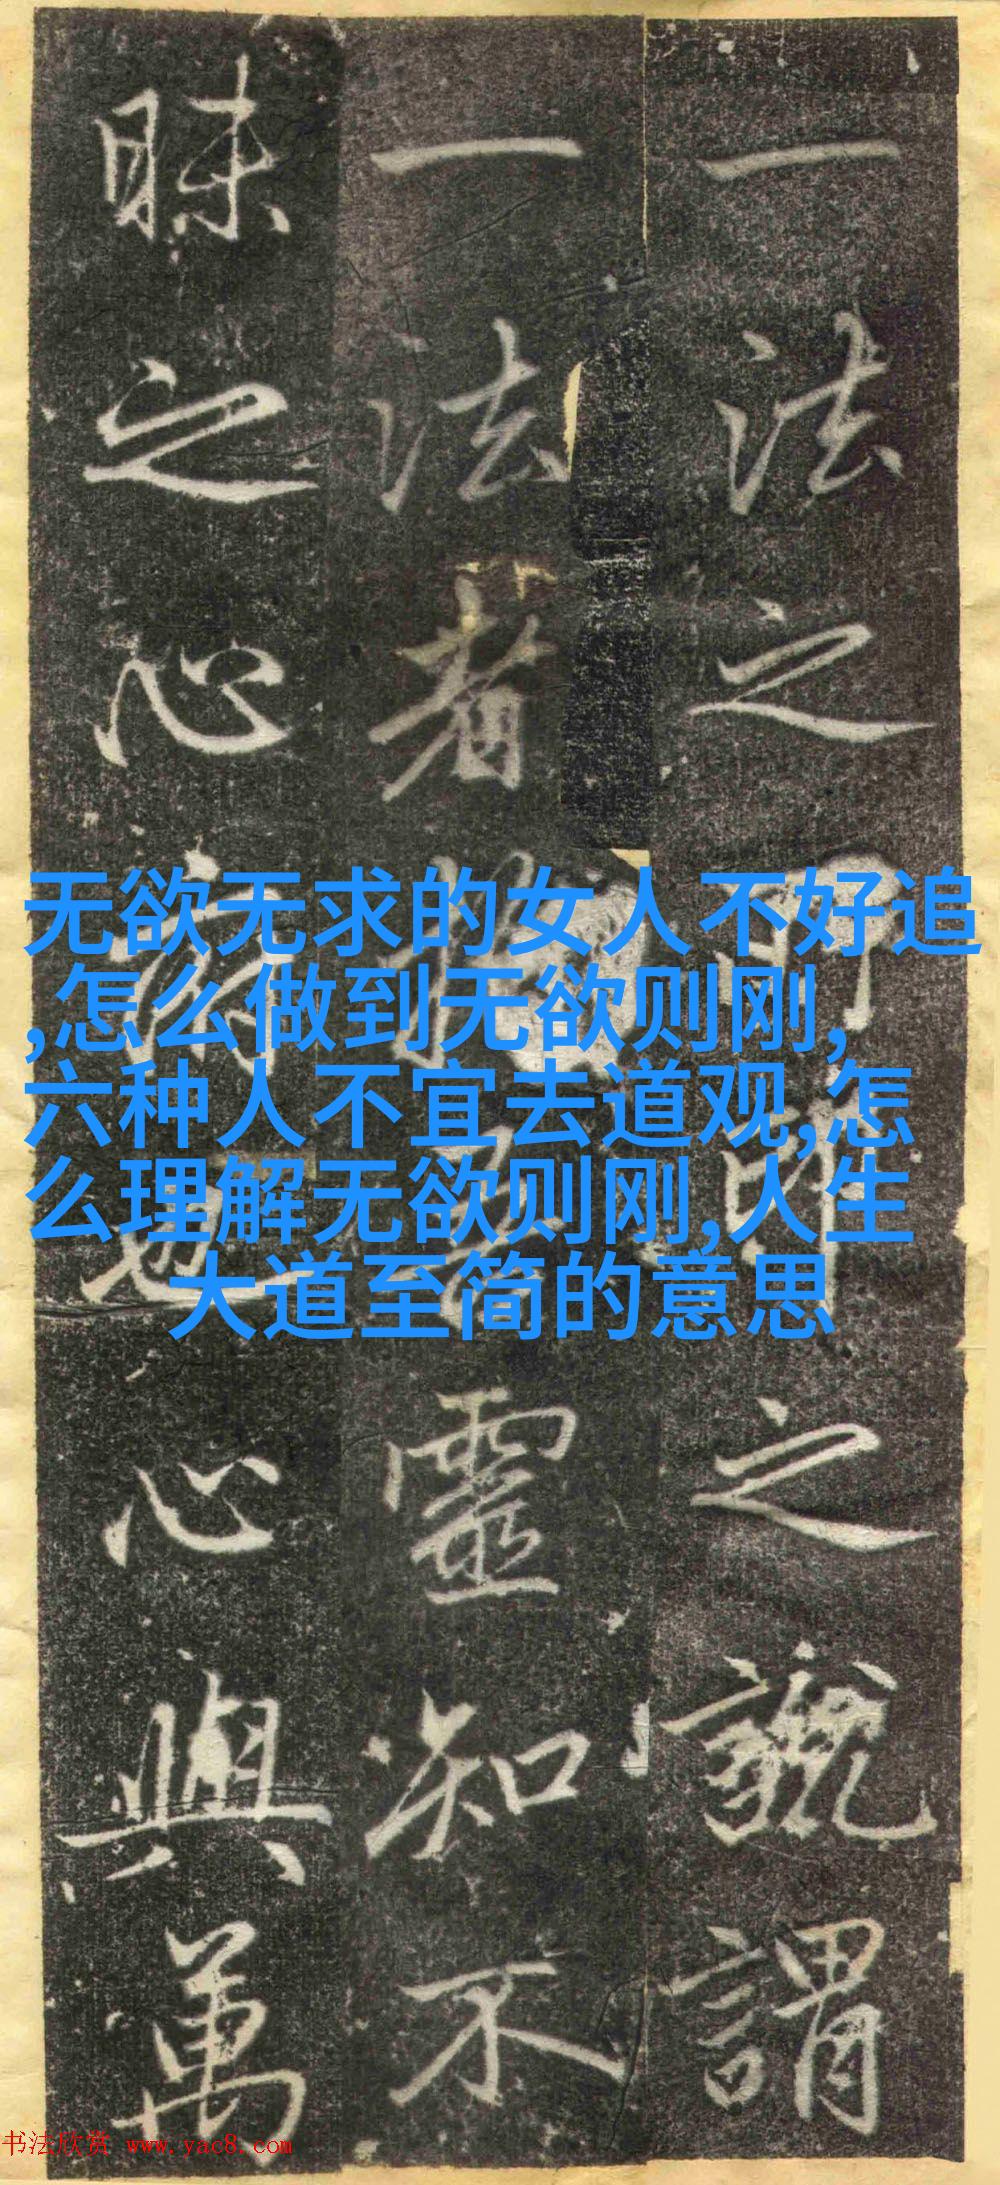 一法之之謂
一法者靈知不
昧之心也心與萬
无欲无求的女人不好追
,怎么做到无欲则刚,
六种人不宜去道观,怎
么理解无欲则刚,人生
大道至简的意思
书法欣赏 www.yac8.com